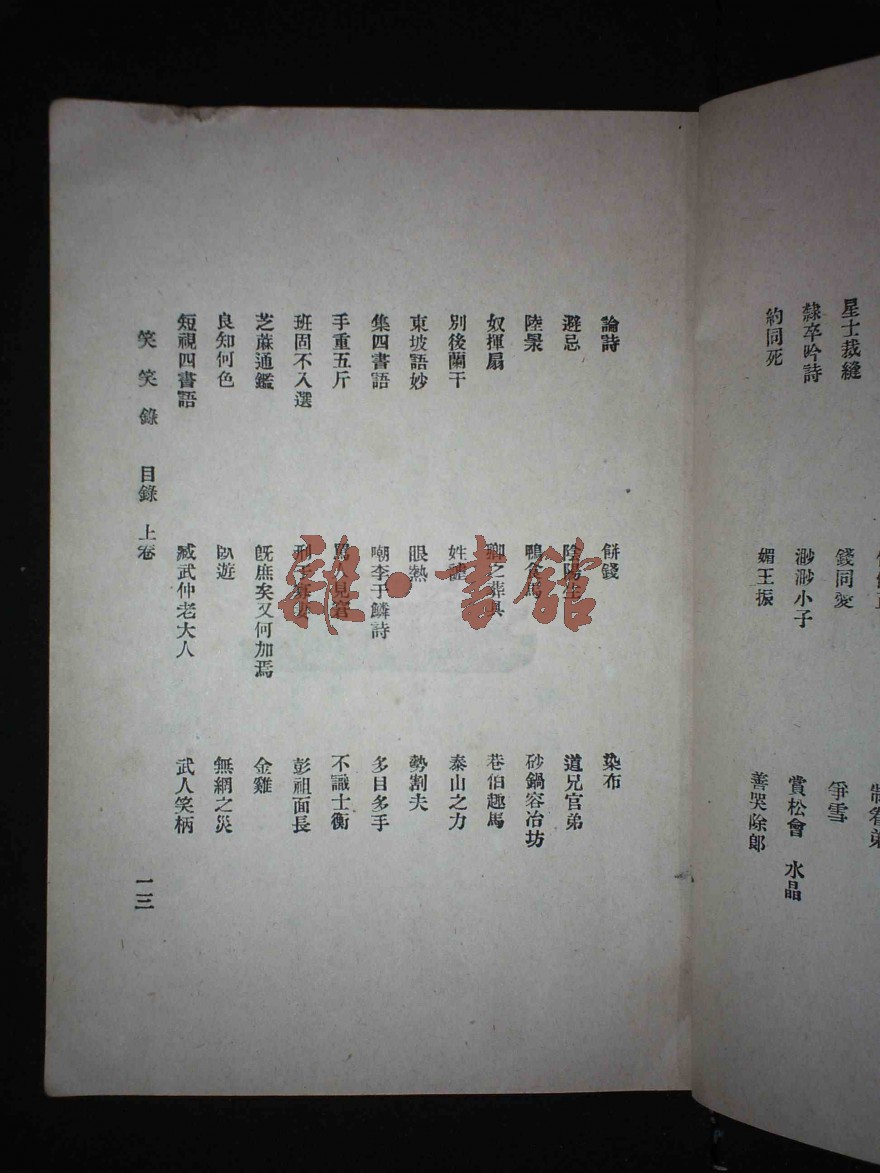 星士裁縫
隸卒吟詩 渺渺小子 賞松會 水晶
約同死 媚王振 善哭除郎
錢同愛 爭雪
論詩 餅錢 染布
避忌 陰陽生 道兄官弟
陸景 鴨 砂鍋容冶坊
奴揮扇 巷伯趣馬
別後闌干 姓禮 泰山之力
東坡語妙 眼熱 勢割夫
集四書語 嘲李于鱗詩 多目多手
手重五斤 罵人見 不識士衡
班固不入選 彭祖面長
芝蔴通鑑 既庶矣又何加焉 金雞
良知何色 臥遊 無網之災
短視四書語 臧武仲老大人 武人笑柄
笑笑錄 目錄 上卷 一三
雜·書館